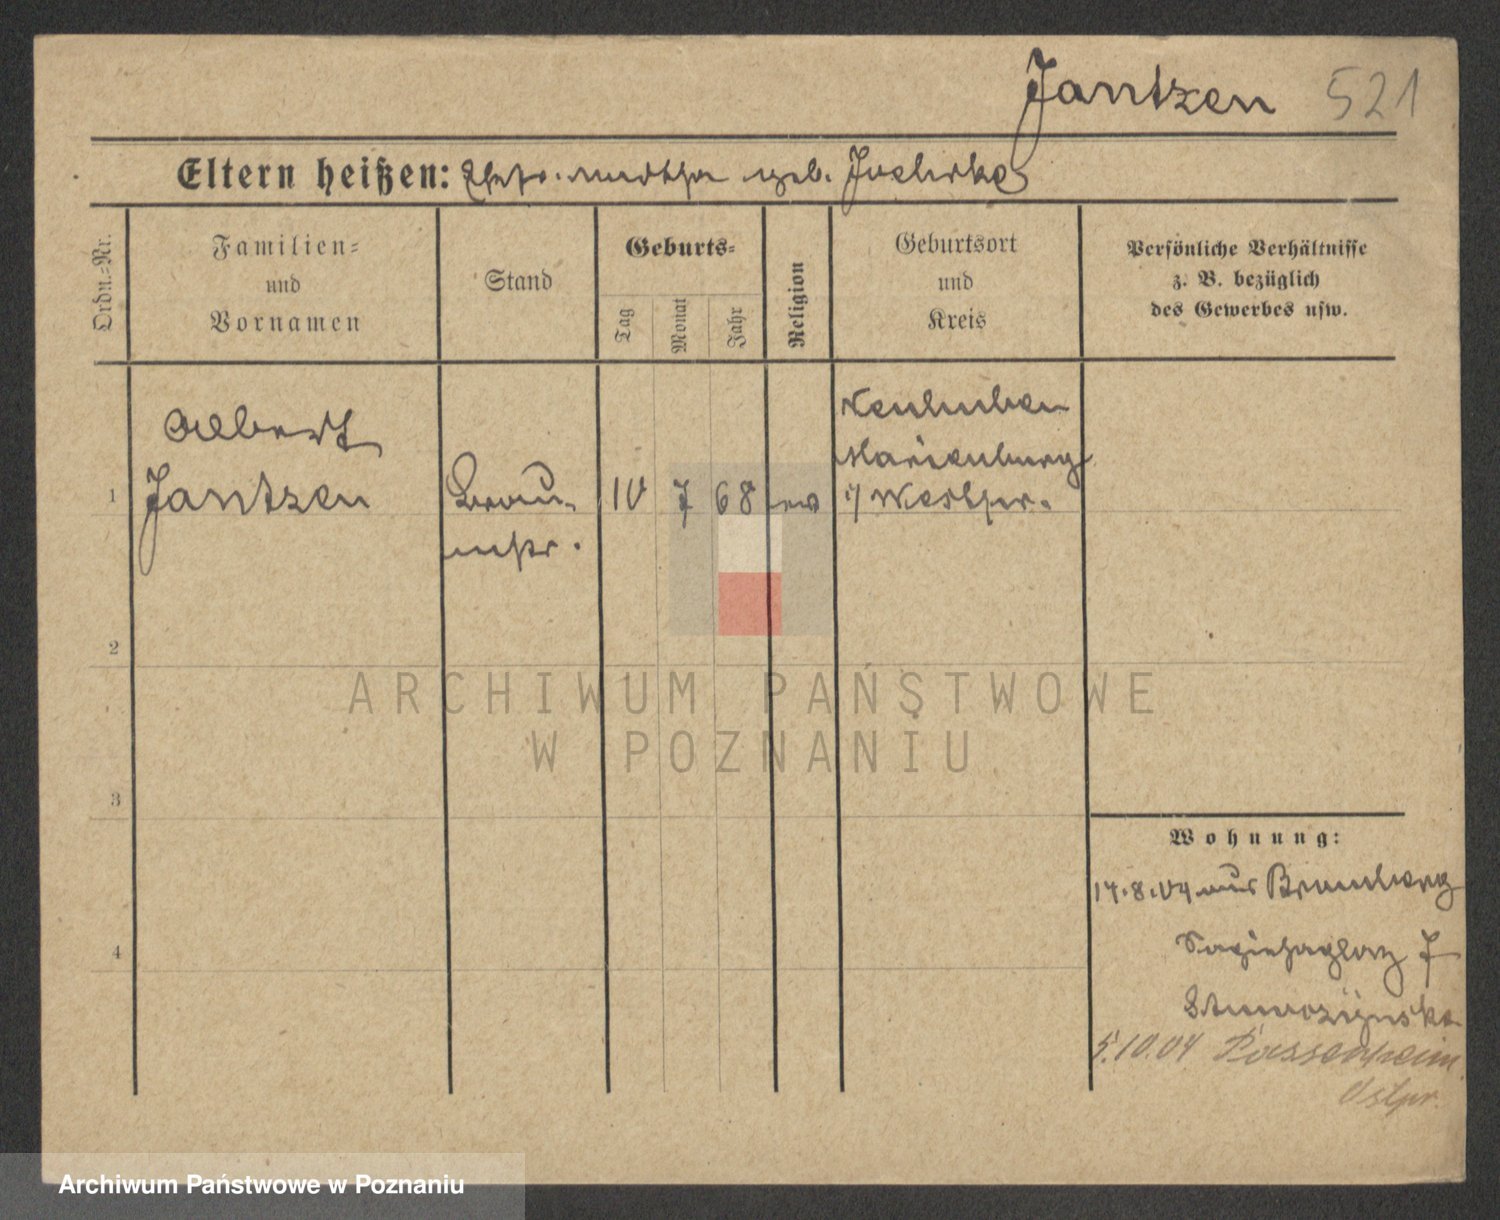 Jantzen 521
Eltern heißen: Ehefr. Martha geb. Joehrke
Ordn.-Nr.
Familien-
und
Vornamen
Stand
Geburts-
Tag
Monat
Jahr
Religion
Geburtsort
und
Kreis
Persönliche Verhältnisse
z. B. bezüglich
des Gewerbes usw.
Albert
Jantzen
1
Brau-
mstr.
10 7 68 ev
Marienburg
i/ Westpr.
2
ARCHIWUM PAŃSTWOWE
W POZNANIU
3
Wohnung:
14.8.04 aus Bromberg
4
Sapiehaplatz 7
5.10.04 Passenheim
Ostpr.
Archiwum Państwowe w Poznaniu